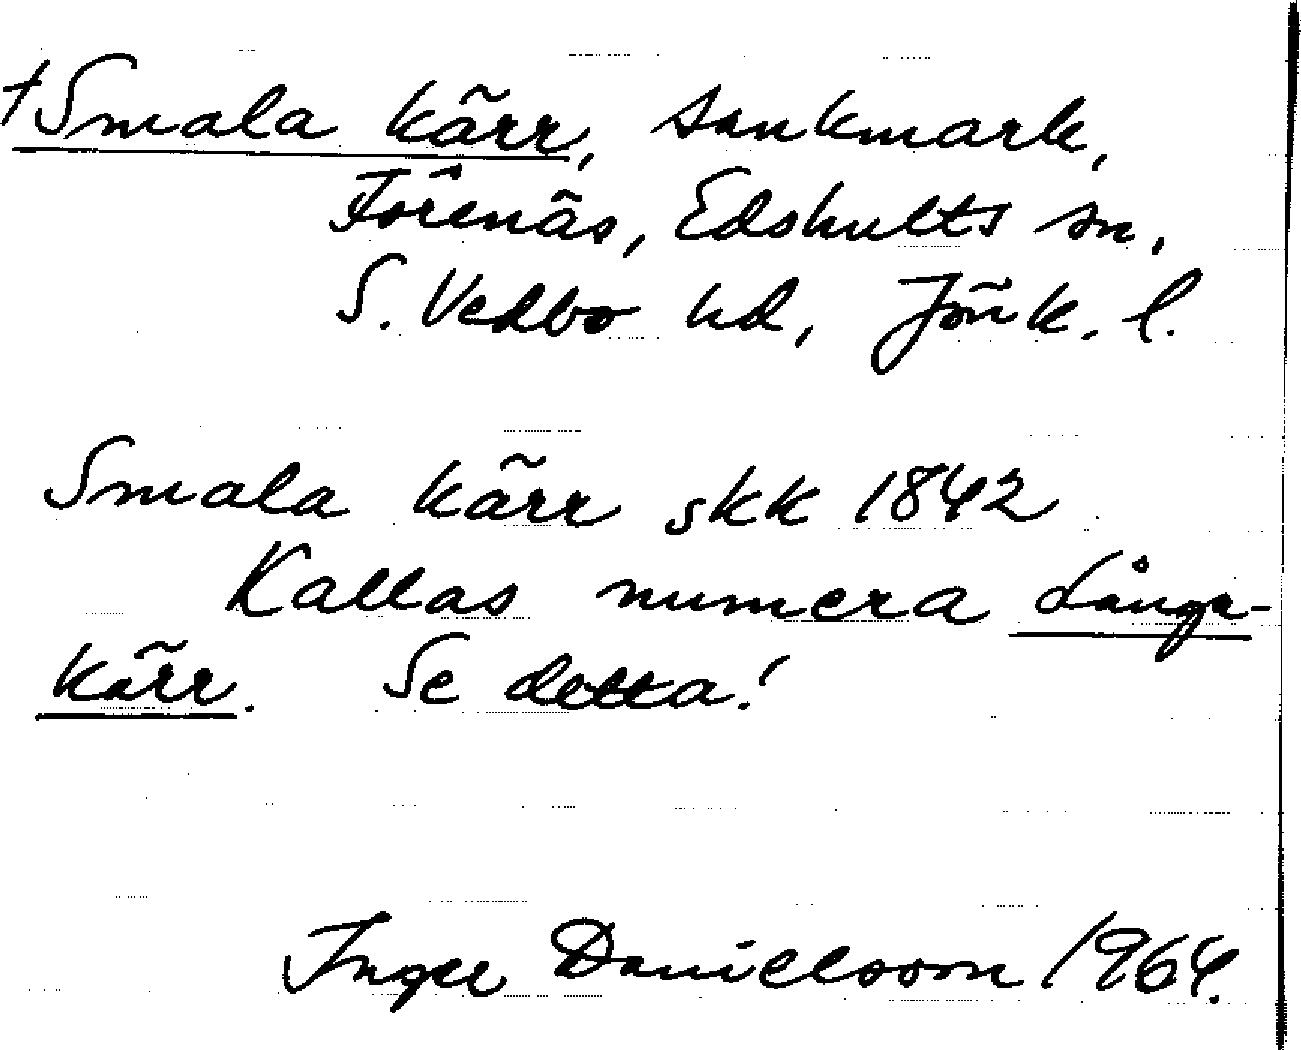 †Smala kärr, sankmark,
Förenäs, Edshults sn,
S. Vedbo hd, Jönk. l.
Smala kärr skk 1842
Kallas numera Långa-
kärr. Se detta!
Inger Danielsson 1964.